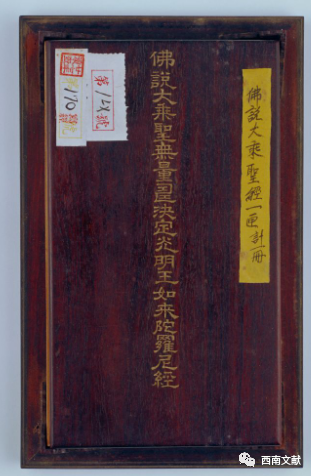 佛說大乘聖經一匣計一冊
佛說大乘聖無量壽決定光明王如來陀羅尼經
170
西南文献